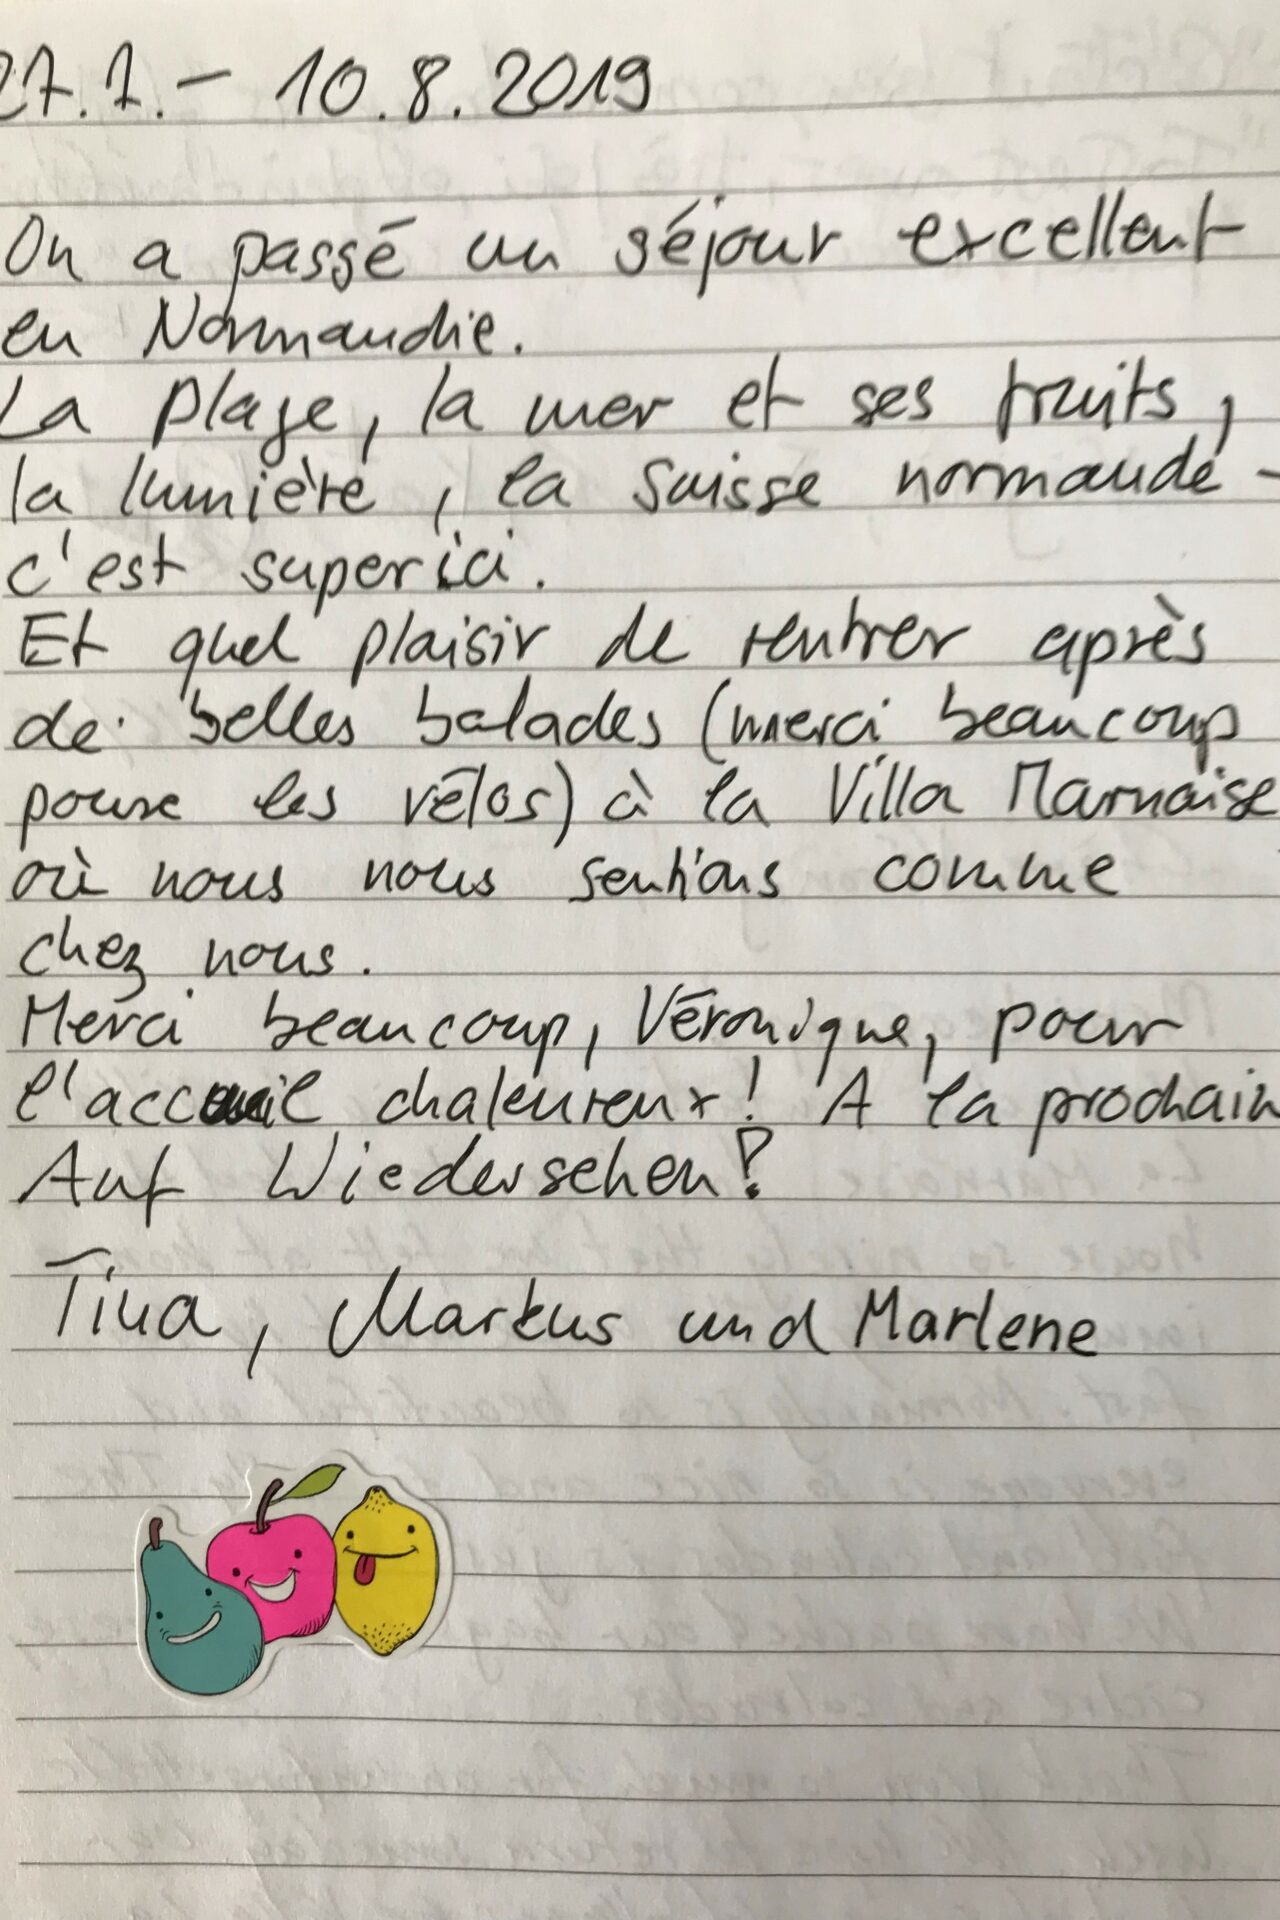 27.7.– 10.8.2019
On a passé un séjour excellent
en Normandie.
La plage, la mer et ses fruits,
la lumière, la Suisse normande –
c'est super ici.
Et quel plaisir de rentrer après
de belles balades (merci beaucoup
pour les vélos) à la Villa Marnaise
où nous nous sentions comme
chez nous.
Merci beaucoup, Véronique, pour
l'accueil chaleureux! A la prochain
Auf Wiedersehen!
Tina, Markus und Marlene